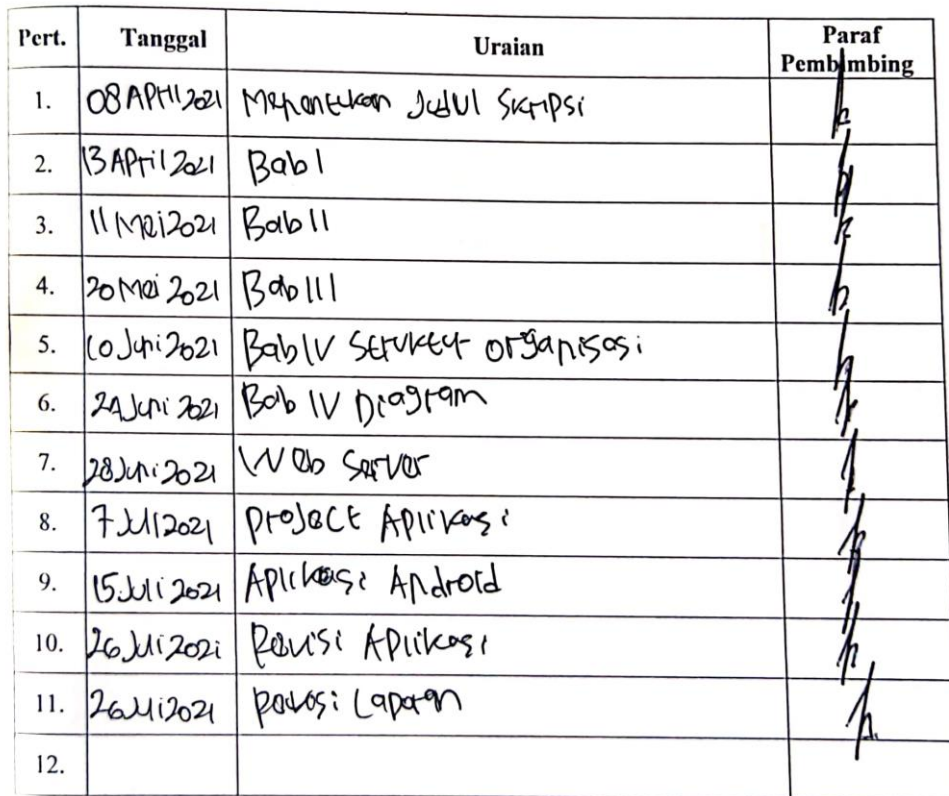 Pert. Tanggal Uraian Paraf Pembimbing
1. 08 April 2021 Menentukan Judul Skripsi
2. 13 April 2021 Bab I
3. 11 Mei 2021 Bab II
4. 20 Mei 2021 Bab III
5. 10 Juni 2021 Bab IV Struktur organisasi
6. 24 Juni 2021 Bab IV Diagram
7. 28 Juni 2021 Web Server
8. 7 Juli 2021 Project Aplikasi
9. 15 Juli 2021 Aplikasi Android
10. 26 Juli 2021 Revisi Aplikasi
11. 26 Juli 2021 Revisi Laporan
12.